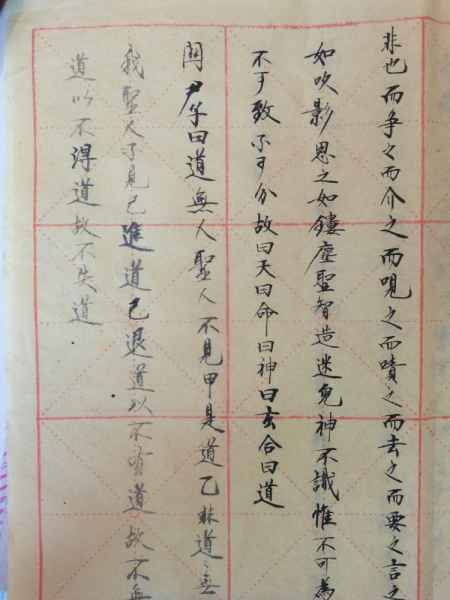 非也而争々而介之而哯之而嘖之而去之而要之言之
如吹影思之如鏤塵聖智造迷鬼神不識惟不可為
不可致不可分故曰天曰命曰神曰玄合曰道
関尹子曰道無人聖人不見甲是道乙非道々無
我聖人不見己進道己退道以不有道故不無
道以不得道故不失道